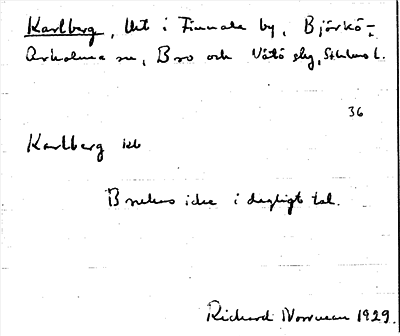 Karlberg, lht i Finnala by, Björkö-
Arholma sn, Bro och Vätö skg, Sthlms l.
36
Karlberg
Brukas icke i dagligt tal.
Richard Norrman 1929.